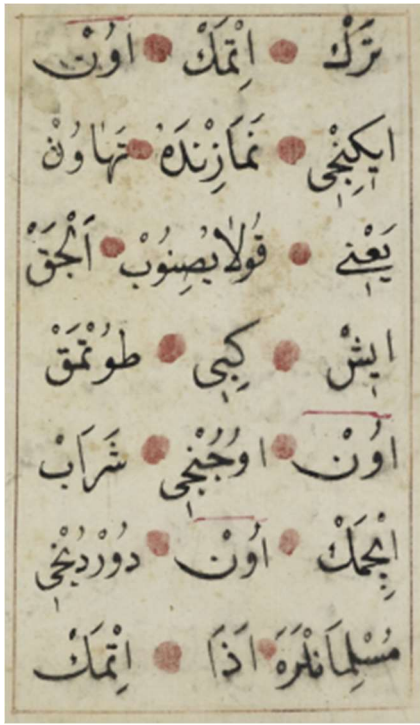 تَرْكْ اِتْمَكْ اُونْ
اِيكِنْجِى نَمَازِنْدَهْ تَهَاوُنْ
يَعْنِى قُولَايْصِنُوبْ اَلْجَقْ
اِيشْ كِبِى طُوتْمَقْ
اُونْ اُوچُنْجِى شَرَابْ
اِچْمَكْ اُونْ دُورْدُنْجِى
مُسْلِمَانْلَرَهْ اَذَا اِتْمَكْ